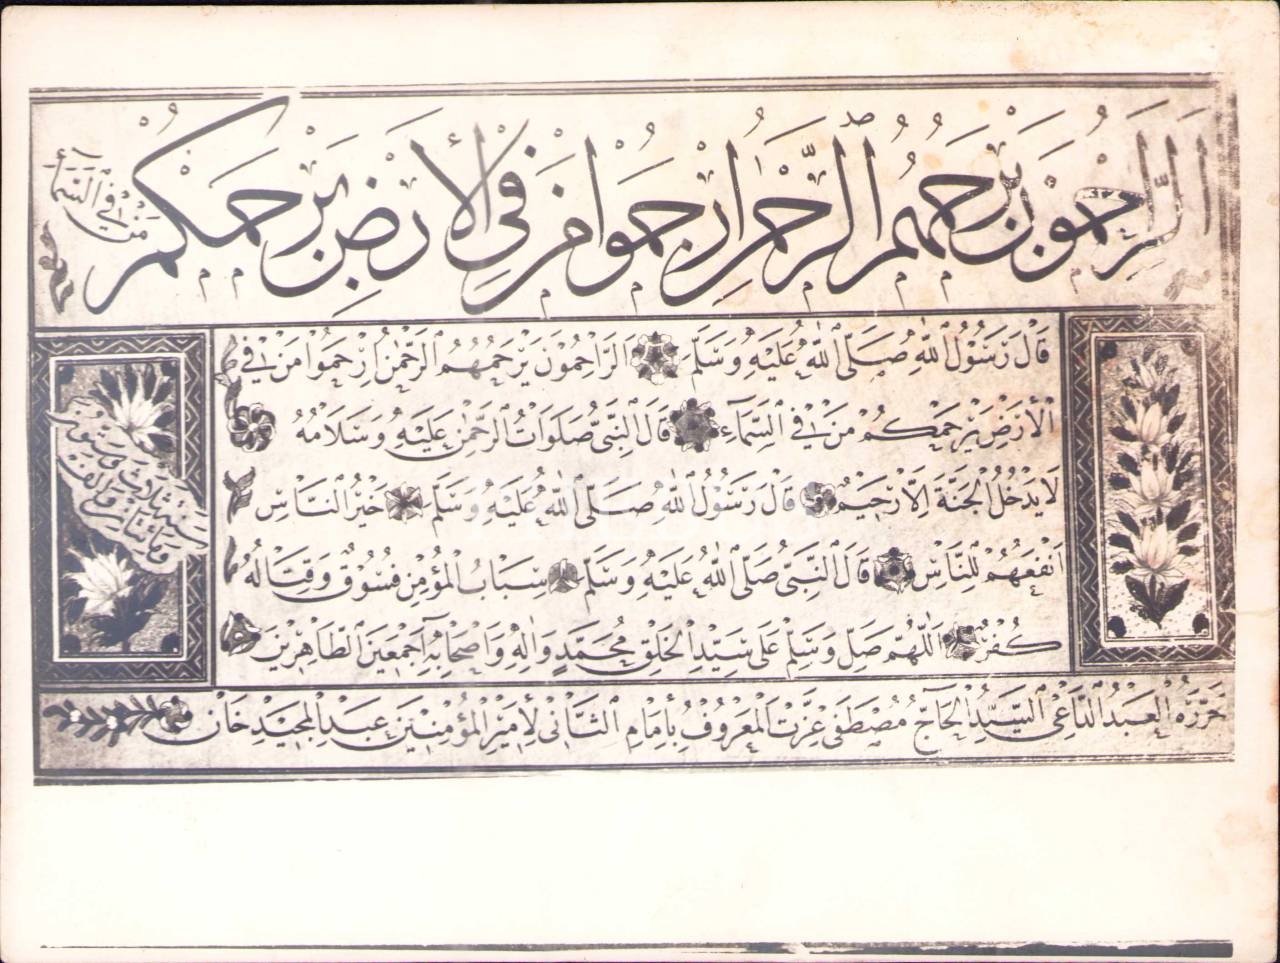 الرَّاحِمُونَ يَرْحَمُهُمُ الرَّحْمٰنُ اِرْحَمُوا مَنْ فِي الْأَرْضِ يَرْحَمْكُمْ
مَنْ فِي السَّمَاءِ
قَالَ رَسُولُ اللّٰهِ صَلَّى اللّٰهُ عَلَيْهِ وَسَلَّمَ اَلرَّاحِمُونَ يَرْحَمُهُمُ الرَّحْمٰنُ اِرْحَمُوا مَنْ فِي
الْأَرْضِ يَرْحَمْكُمْ مَنْ فِي السَّمَآءِ قَالَ النَّبِيُّ صَلَوَاتُ الرَّحْمٰنِ عَلَيْهِ وَسَلَامُهُ
لَا يَدْخُلُ الْجَنَّةَ اِلَّا رَحِيمٌ قَالَ رَسُولُ اللّٰهِ صَلَّى اللّٰهُ عَلَيْهِ وَسَلَّمَ خَيْرُ النَّاسِ
اَنْفَعُهُمْ لِلنَّاسِ قَالَ النَّبِيُّ صَلَّى اللّٰهُ عَلَيْهِ وَسَلَّمَ سِبَابُ الْمُؤْمِنِ فُسُوقٌ وَقِتَالُهُ
كُفْرٌ اَللّٰهُمَّ صَلِّ وَسَلِّمْ عَلَى سَيِّدِ الْخَلْقِ مُحَمَّدٍ وَاٰلِهِ وَاَصْحَابِهِ اَجْمَعِينَ الطَّاهِرِينَ
سنة ثلاث وستين
ومائتين والف
حَرَّرَهُ الْعَبْدُ الدَّاعِي السَّيِّدُ الْحَاجّ مُصْطَفَى عِزَّتْ الْمَعْرُوفُ بِاِمَامِ الثَّانِي لِأَمِيرِ الْمُؤْمِنِينَ عَبْدِ الْمَجِيدِ خَانْ